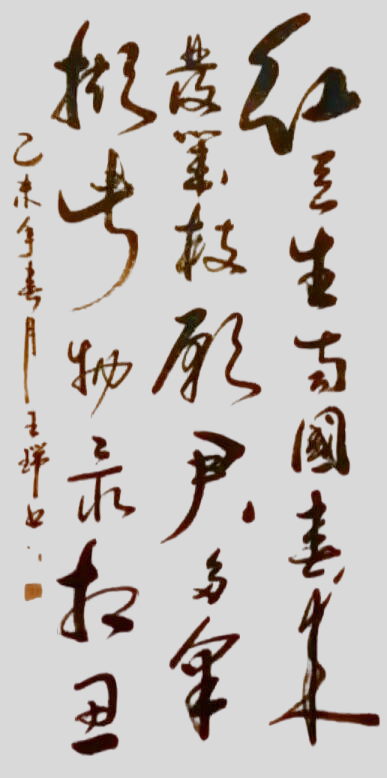 红豆生南國春来
發幾枝願君多采
撷此物最相思
乙未年春月王书